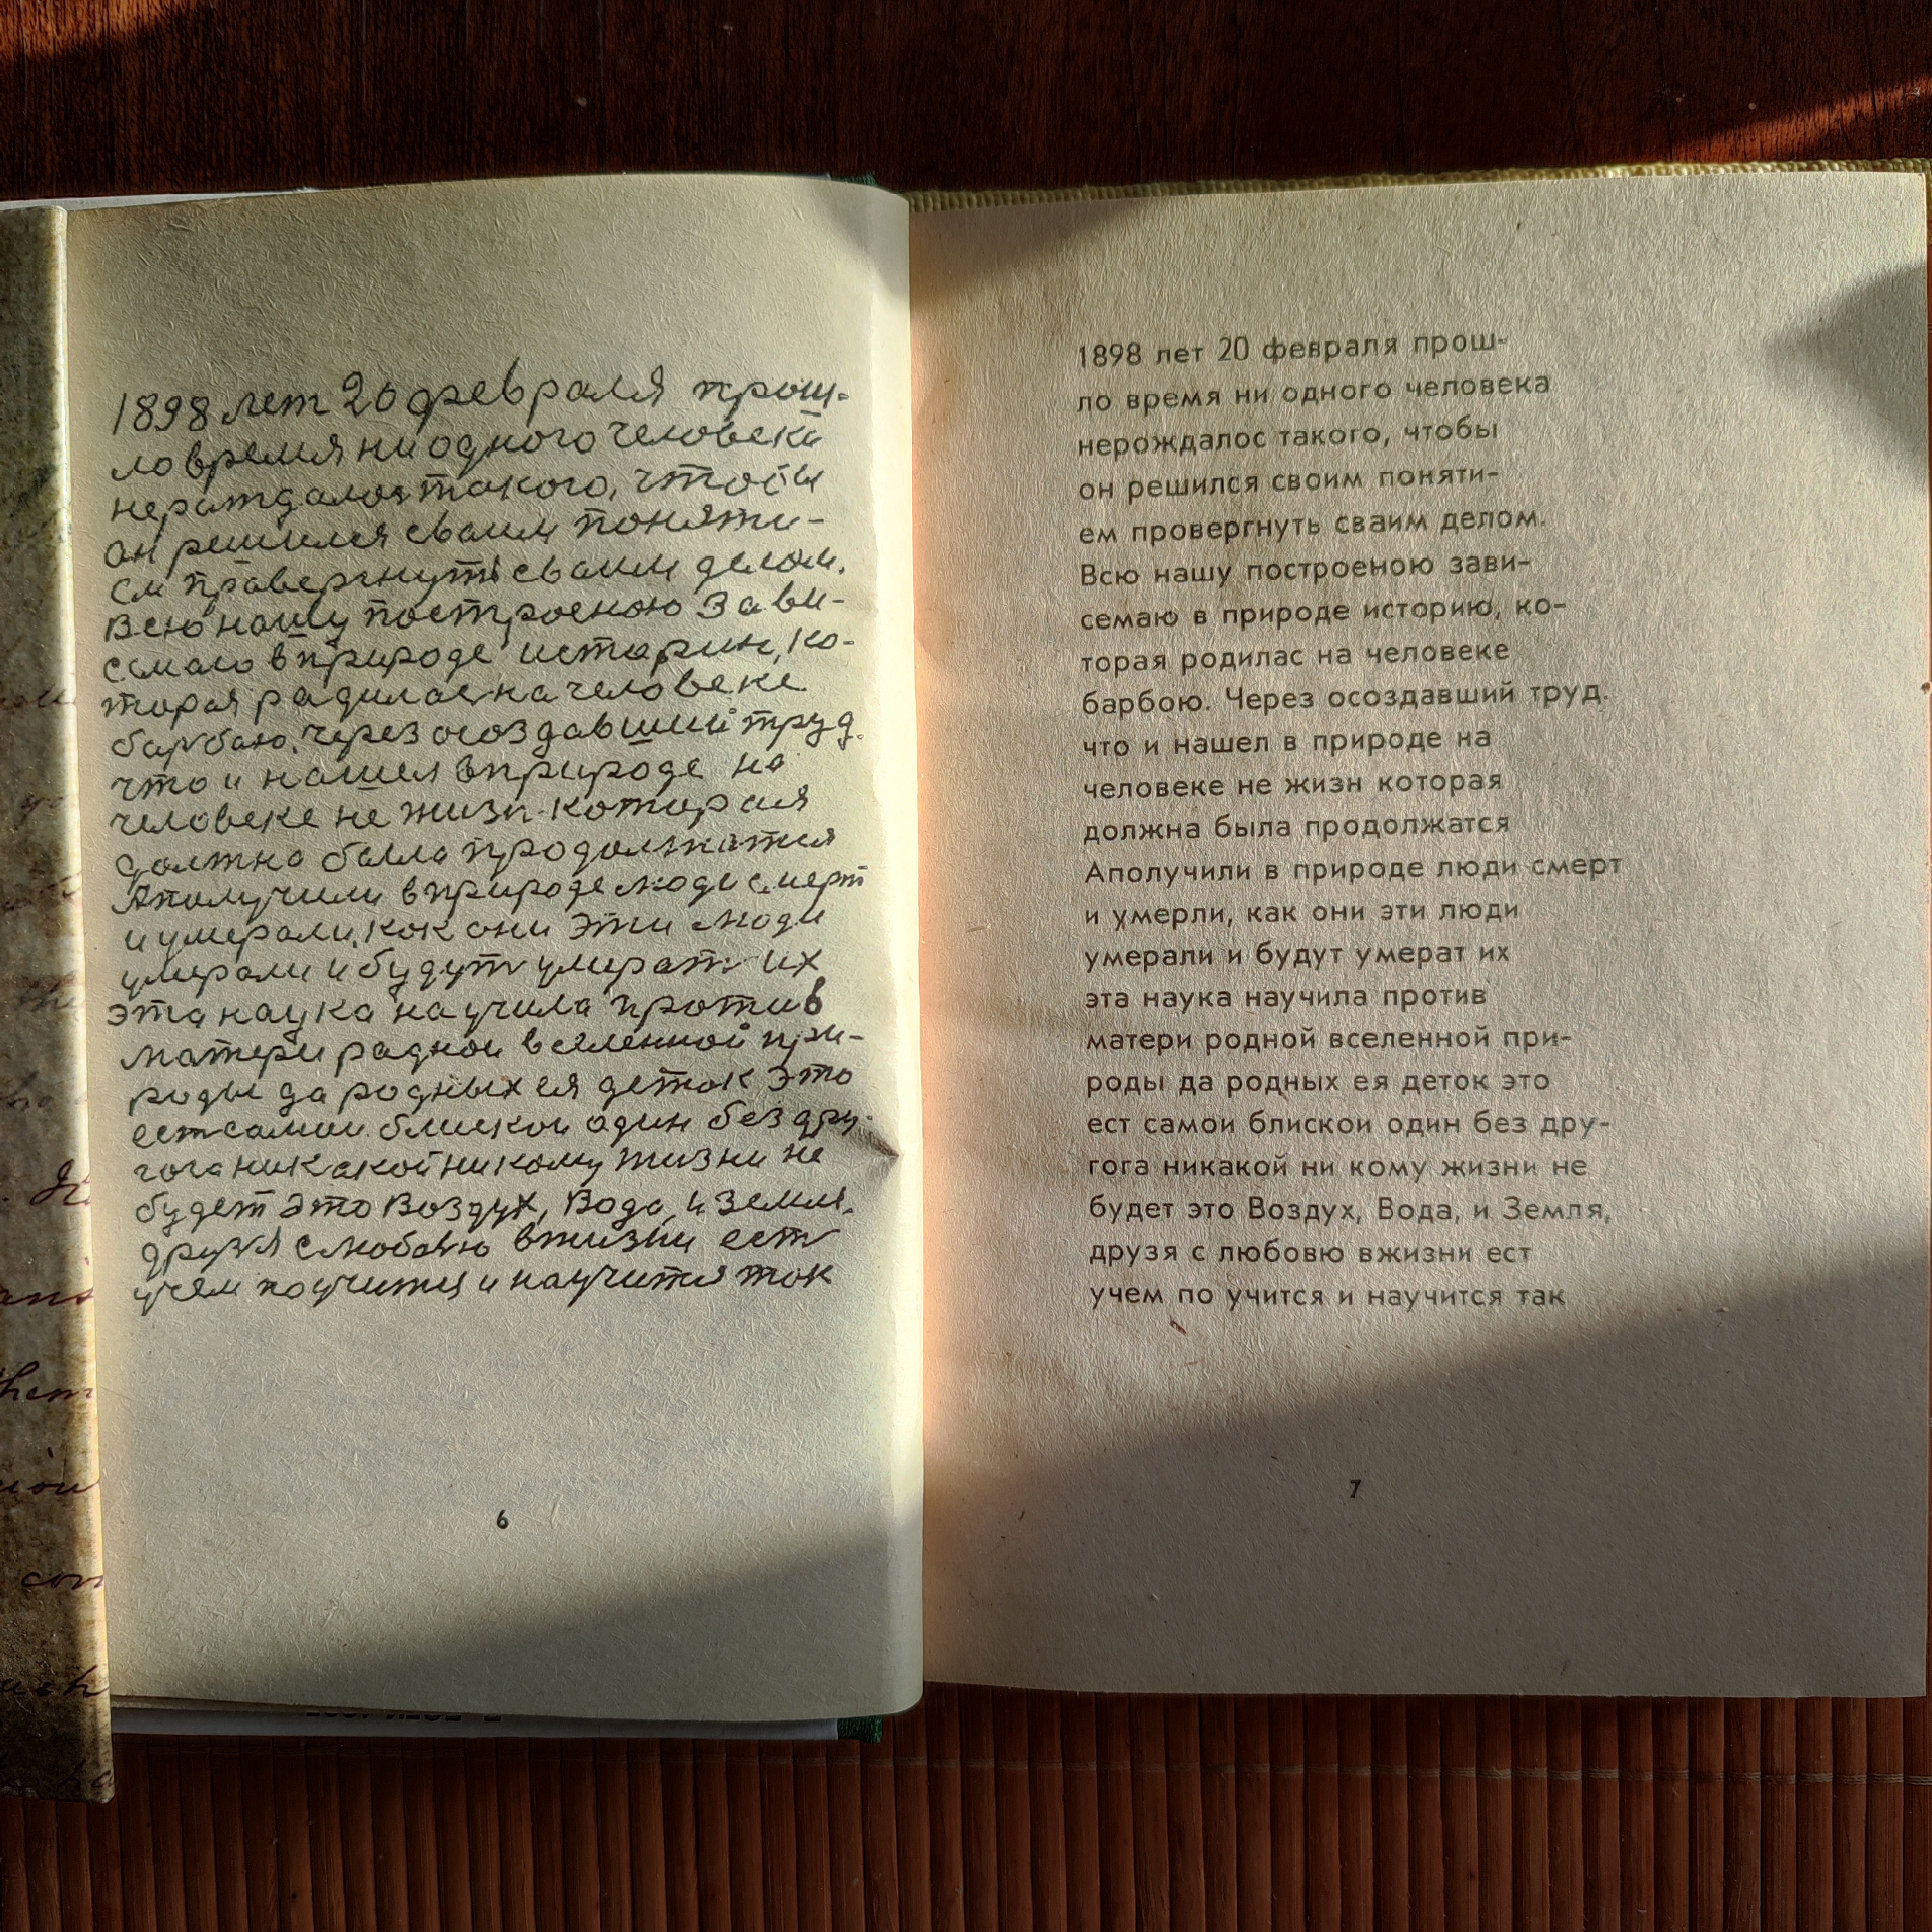 1898 лет 20 февраля прош-
ло время ни одного человека
нераждалос такого, чтобы
он решился сваим поняти-
ем правергнуть сваим делом.
Всю нашу построеною зави-
семаю в природе истории, ко-
торая радилас на человеке
барбаю. Через осоздавший труд.
что и нашел в природе на
человеке не жизн которая
должна была продолжатся
Аполучили в природе люди смерт
и умерали, как они эти люди
умерали и будут умерат их
эта наука научила против
матери радной вселенной при-
роды да родных ея деток это
ест самои блискои один без дру-
гога никакой никому жизни не
будет это Воздух, Вода, и Земля,
друзя с любовю вжизни ест
учем поучится и научится так
6
1898 лет 20 февраля прош-
ло время ни одного человека
нерождалос такого, чтобы
он решился своим поняти-
ем провергнуть сваим делом.
Всю нашу построеною зави-
семаю в природе историю, ко-
торая родилас на человеке
барбою. Через осоздавший труд.
что и нашел в природе на
человеке не жизн которая
должна была продолжатся
Аполучили в природе люди смерт
и умерли, как они эти люди
умерали и будут умерат их
эта наука научила против
матери родной вселенной при-
роды да родных ея деток это
ест самои блискои один без дру-
гога никакой ни кому жизни не
будет это Воздух, Вода, и Земля,
друзя с любовю вжизни ест
учем по учится и научится так
7